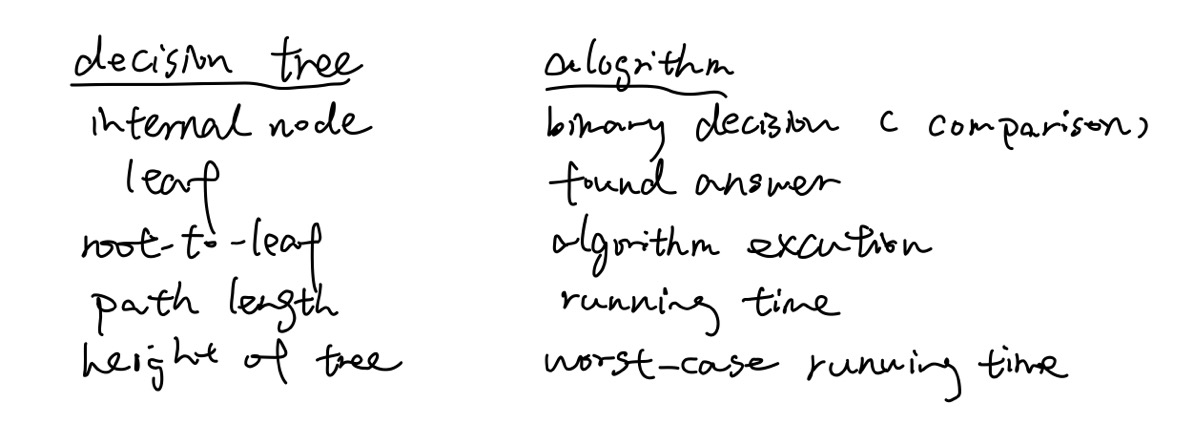 decision tree alogrithm
internal node binary decision ( comparison)
leaf found answer
root-to-leaf algorithm excution
path length running time
height of tree worst-case running time